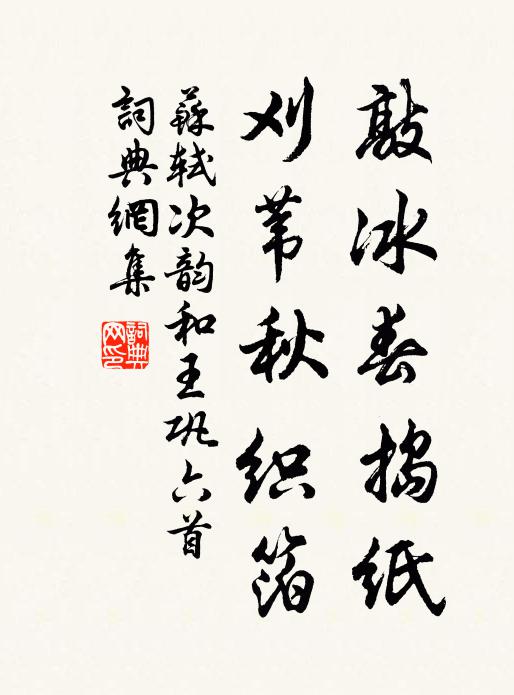 敲冰春捣纸
刈苇秋织箔
蘇軾次韵和王巩六首
詞典網集
詞典网印